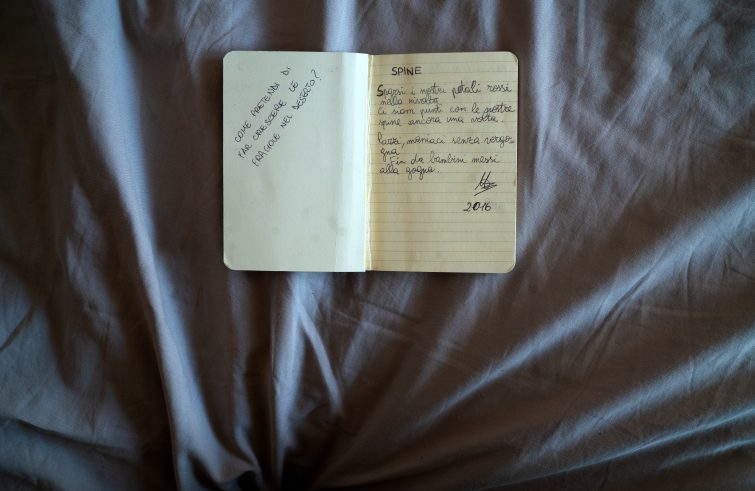 COME PRETENDI DI
FAR CRESCERE LE
FRAGOLE NEL DESERTO?
SPINE
Sparsi i nostri petali rossi
nella rivolta
Ci siam punti con le nostre
spine ancora una volta.
Pazzi, maniaci senza vergo-
gna
Fin da bambini messi
alla gogna.
2016